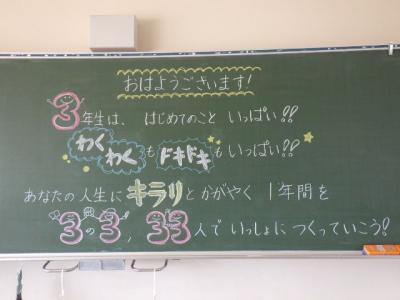 おはようございます!
3年生は、はじめてのこと いっぱい!!
わくわくも ドキドキも いっぱい!!
あなたの人生に キラリと かがやく 1年間を
3の3、33人で いっしょに つくっていこう!